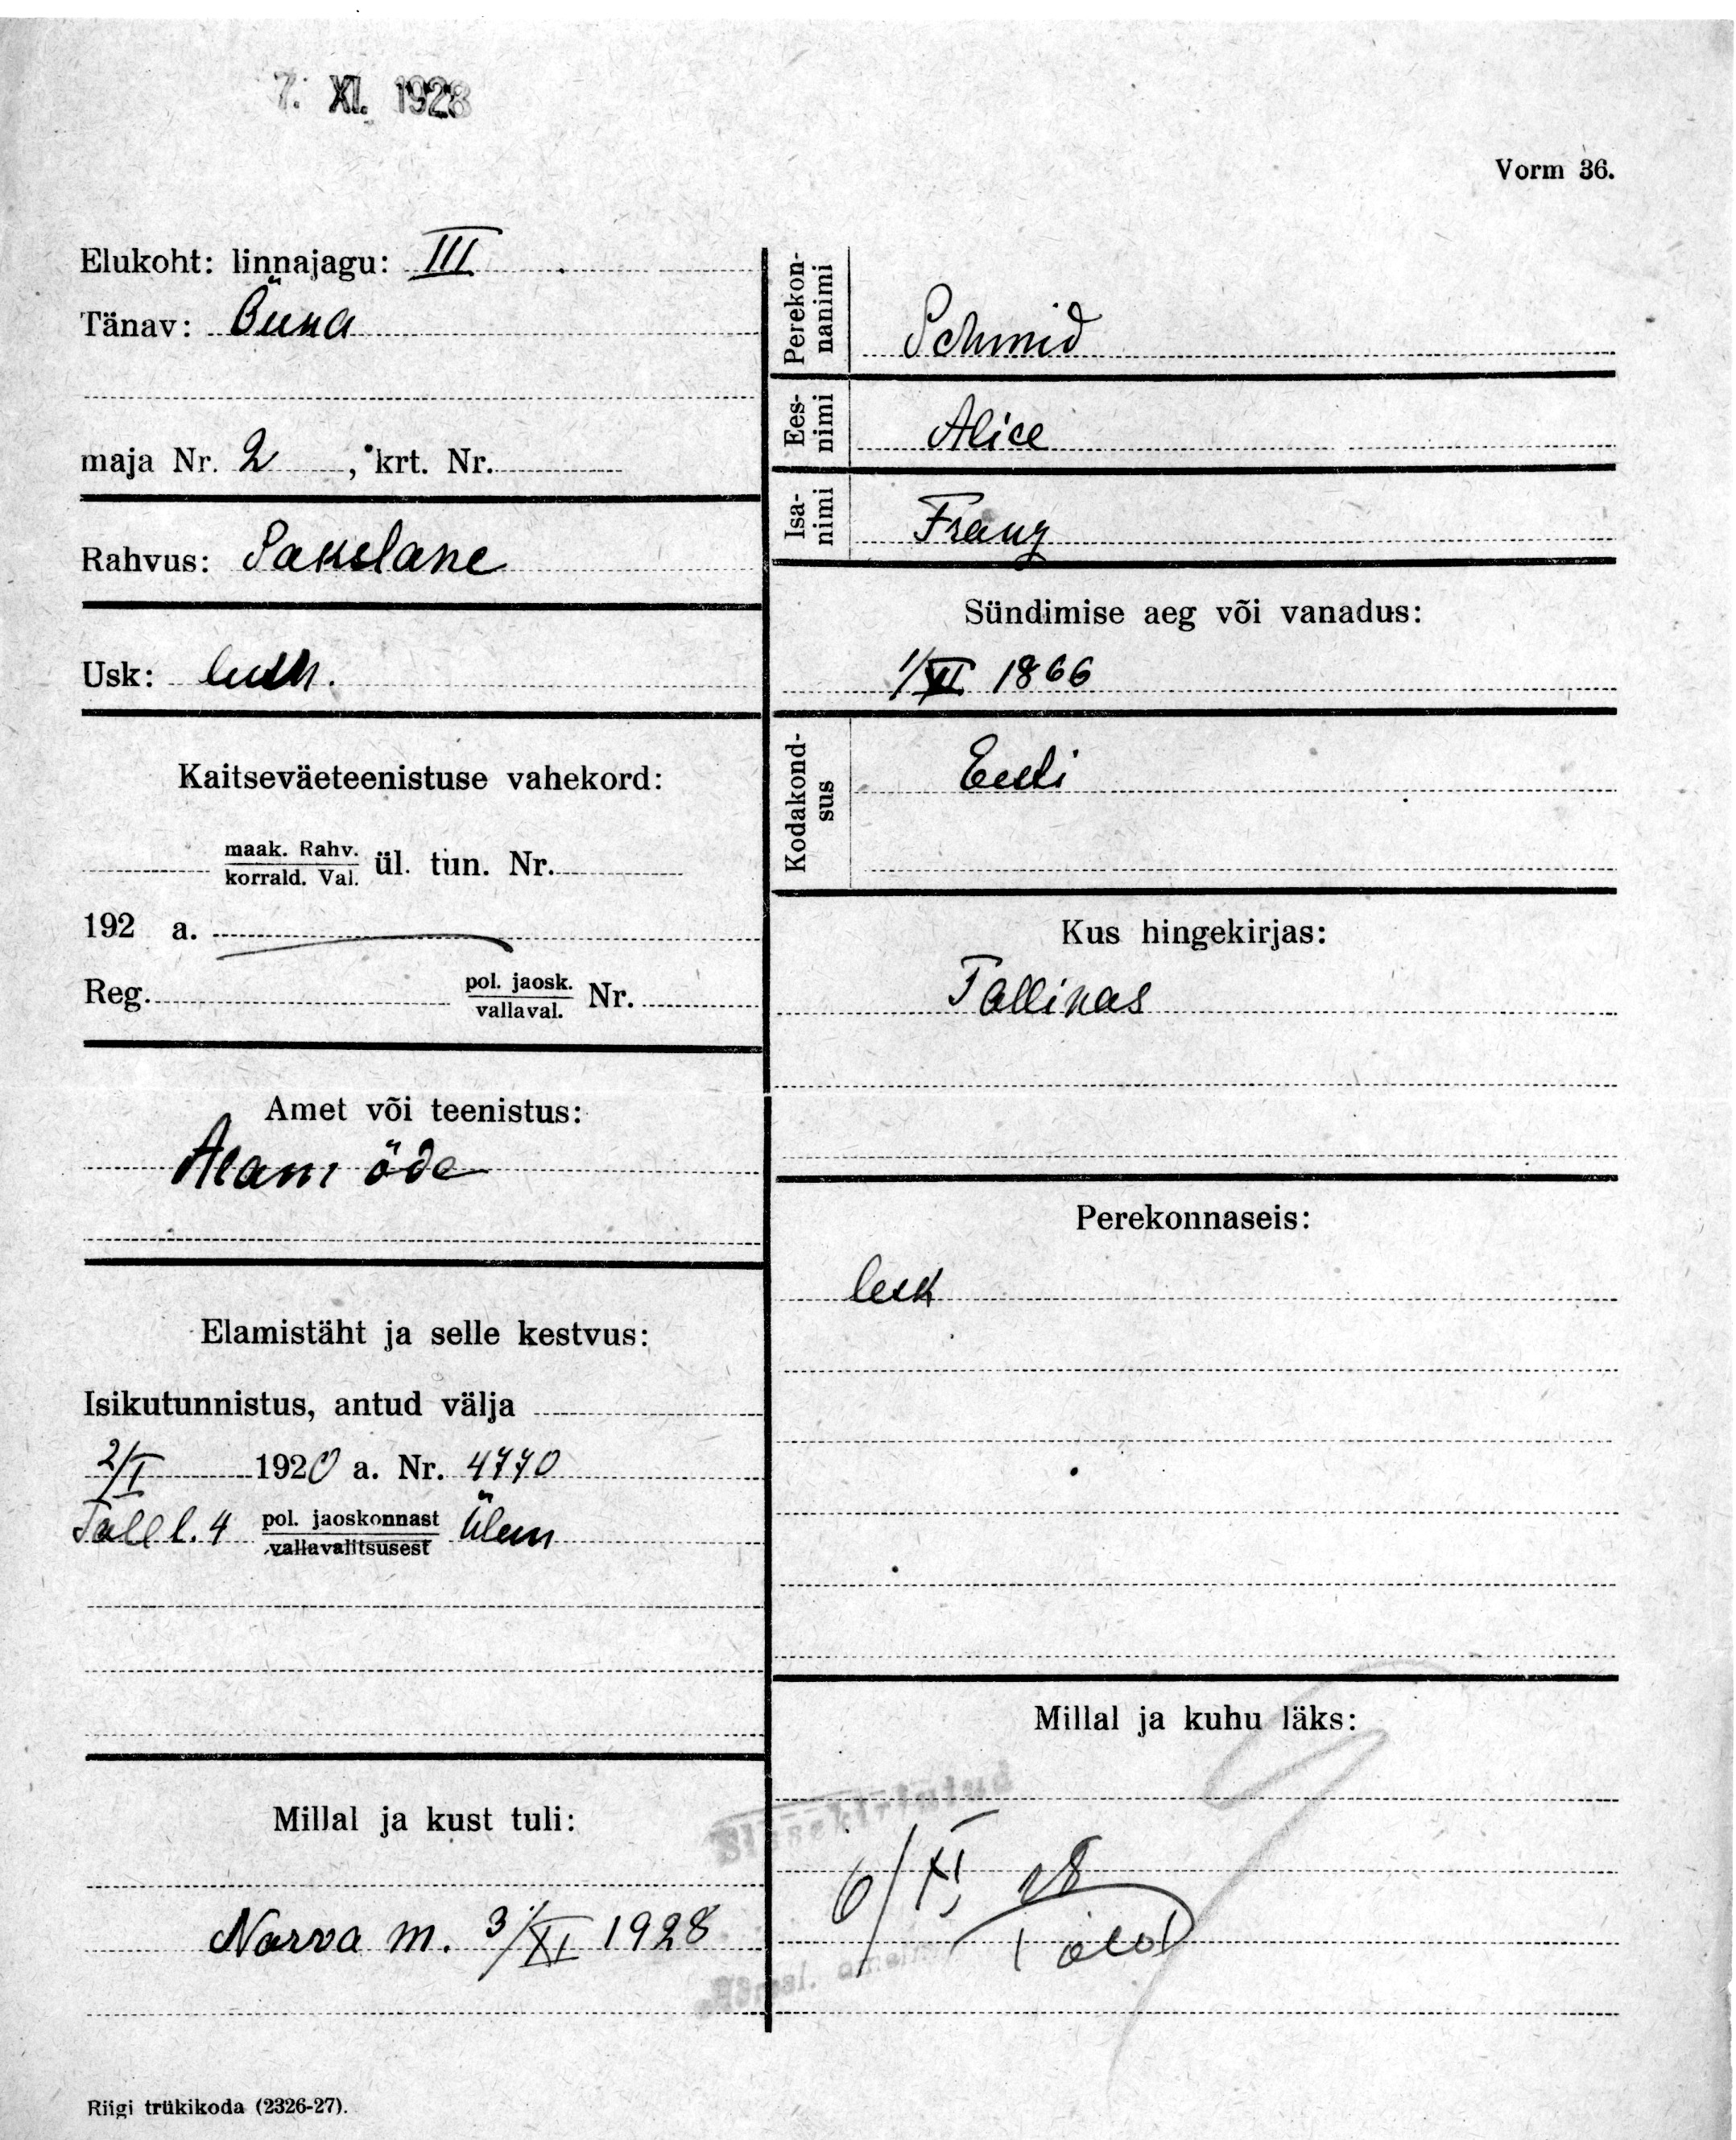 7. XI. 1928
Vorm 36.
Elukoht: linnajagu: III
Tänav: Õuna
maja Nr. 2, krt. Nr.
Rahvus: Sakslane
Usk: luth.
Kaitseväeteenistuse vahekord:
maak. Rahv.
korrald. Val. ül. tun. Nr.
192 a.
Reg. pol. jaosk. Nr.
vallaval.
Amet või teenistus:
õde
Elamistäht ja selle kestvus:
Isikutunnistus, antud välja
2/I 1920 a. Nr. 4770
Tall l. 4 pol. jaoskonnast Ülem
vallavalitsusest
Millal ja kust tuli:
Narva m. 3/XI 1928
Riigi trükikoda (2326-27).
Perekon-
nanimi
Schmid
Ees-
nimi
Alice
Isa-
nimi
Franz
Sündimise aeg või vanadus:
1/VI 1866
Kodakond-
sus
Eesti
Kus hingekirjas:
Tallinas
Perekonnaseis:
lesk
Millal ja kuhu läks:
Sissekirjutud
6/XI 28